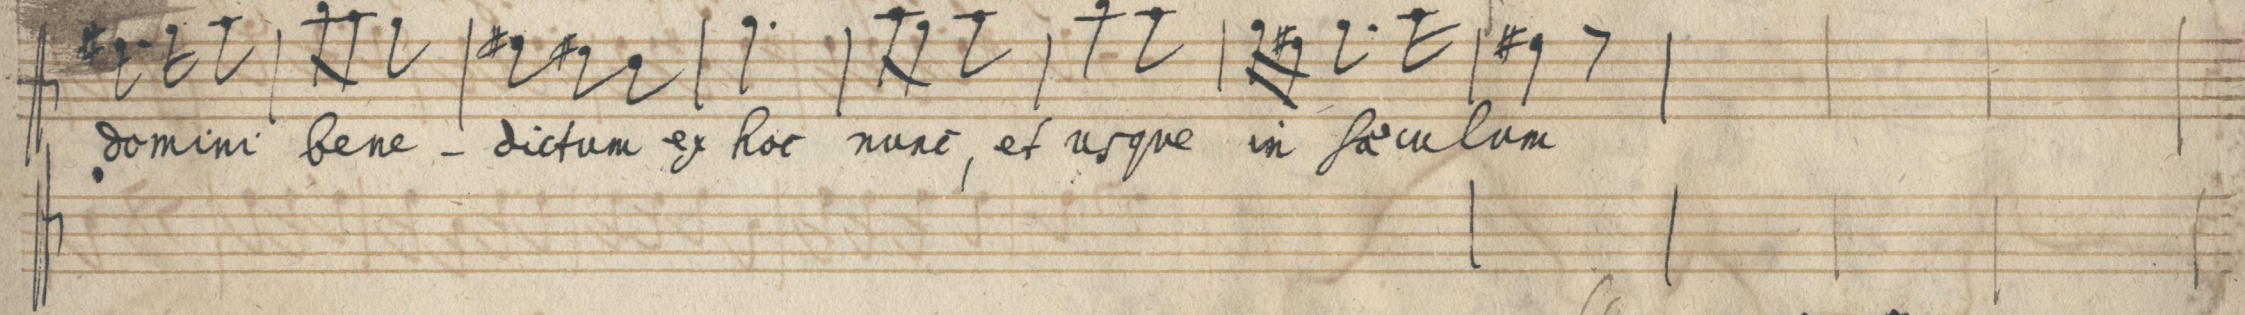 domini bene - dictum ex hoc nunc, et usque in sæculum